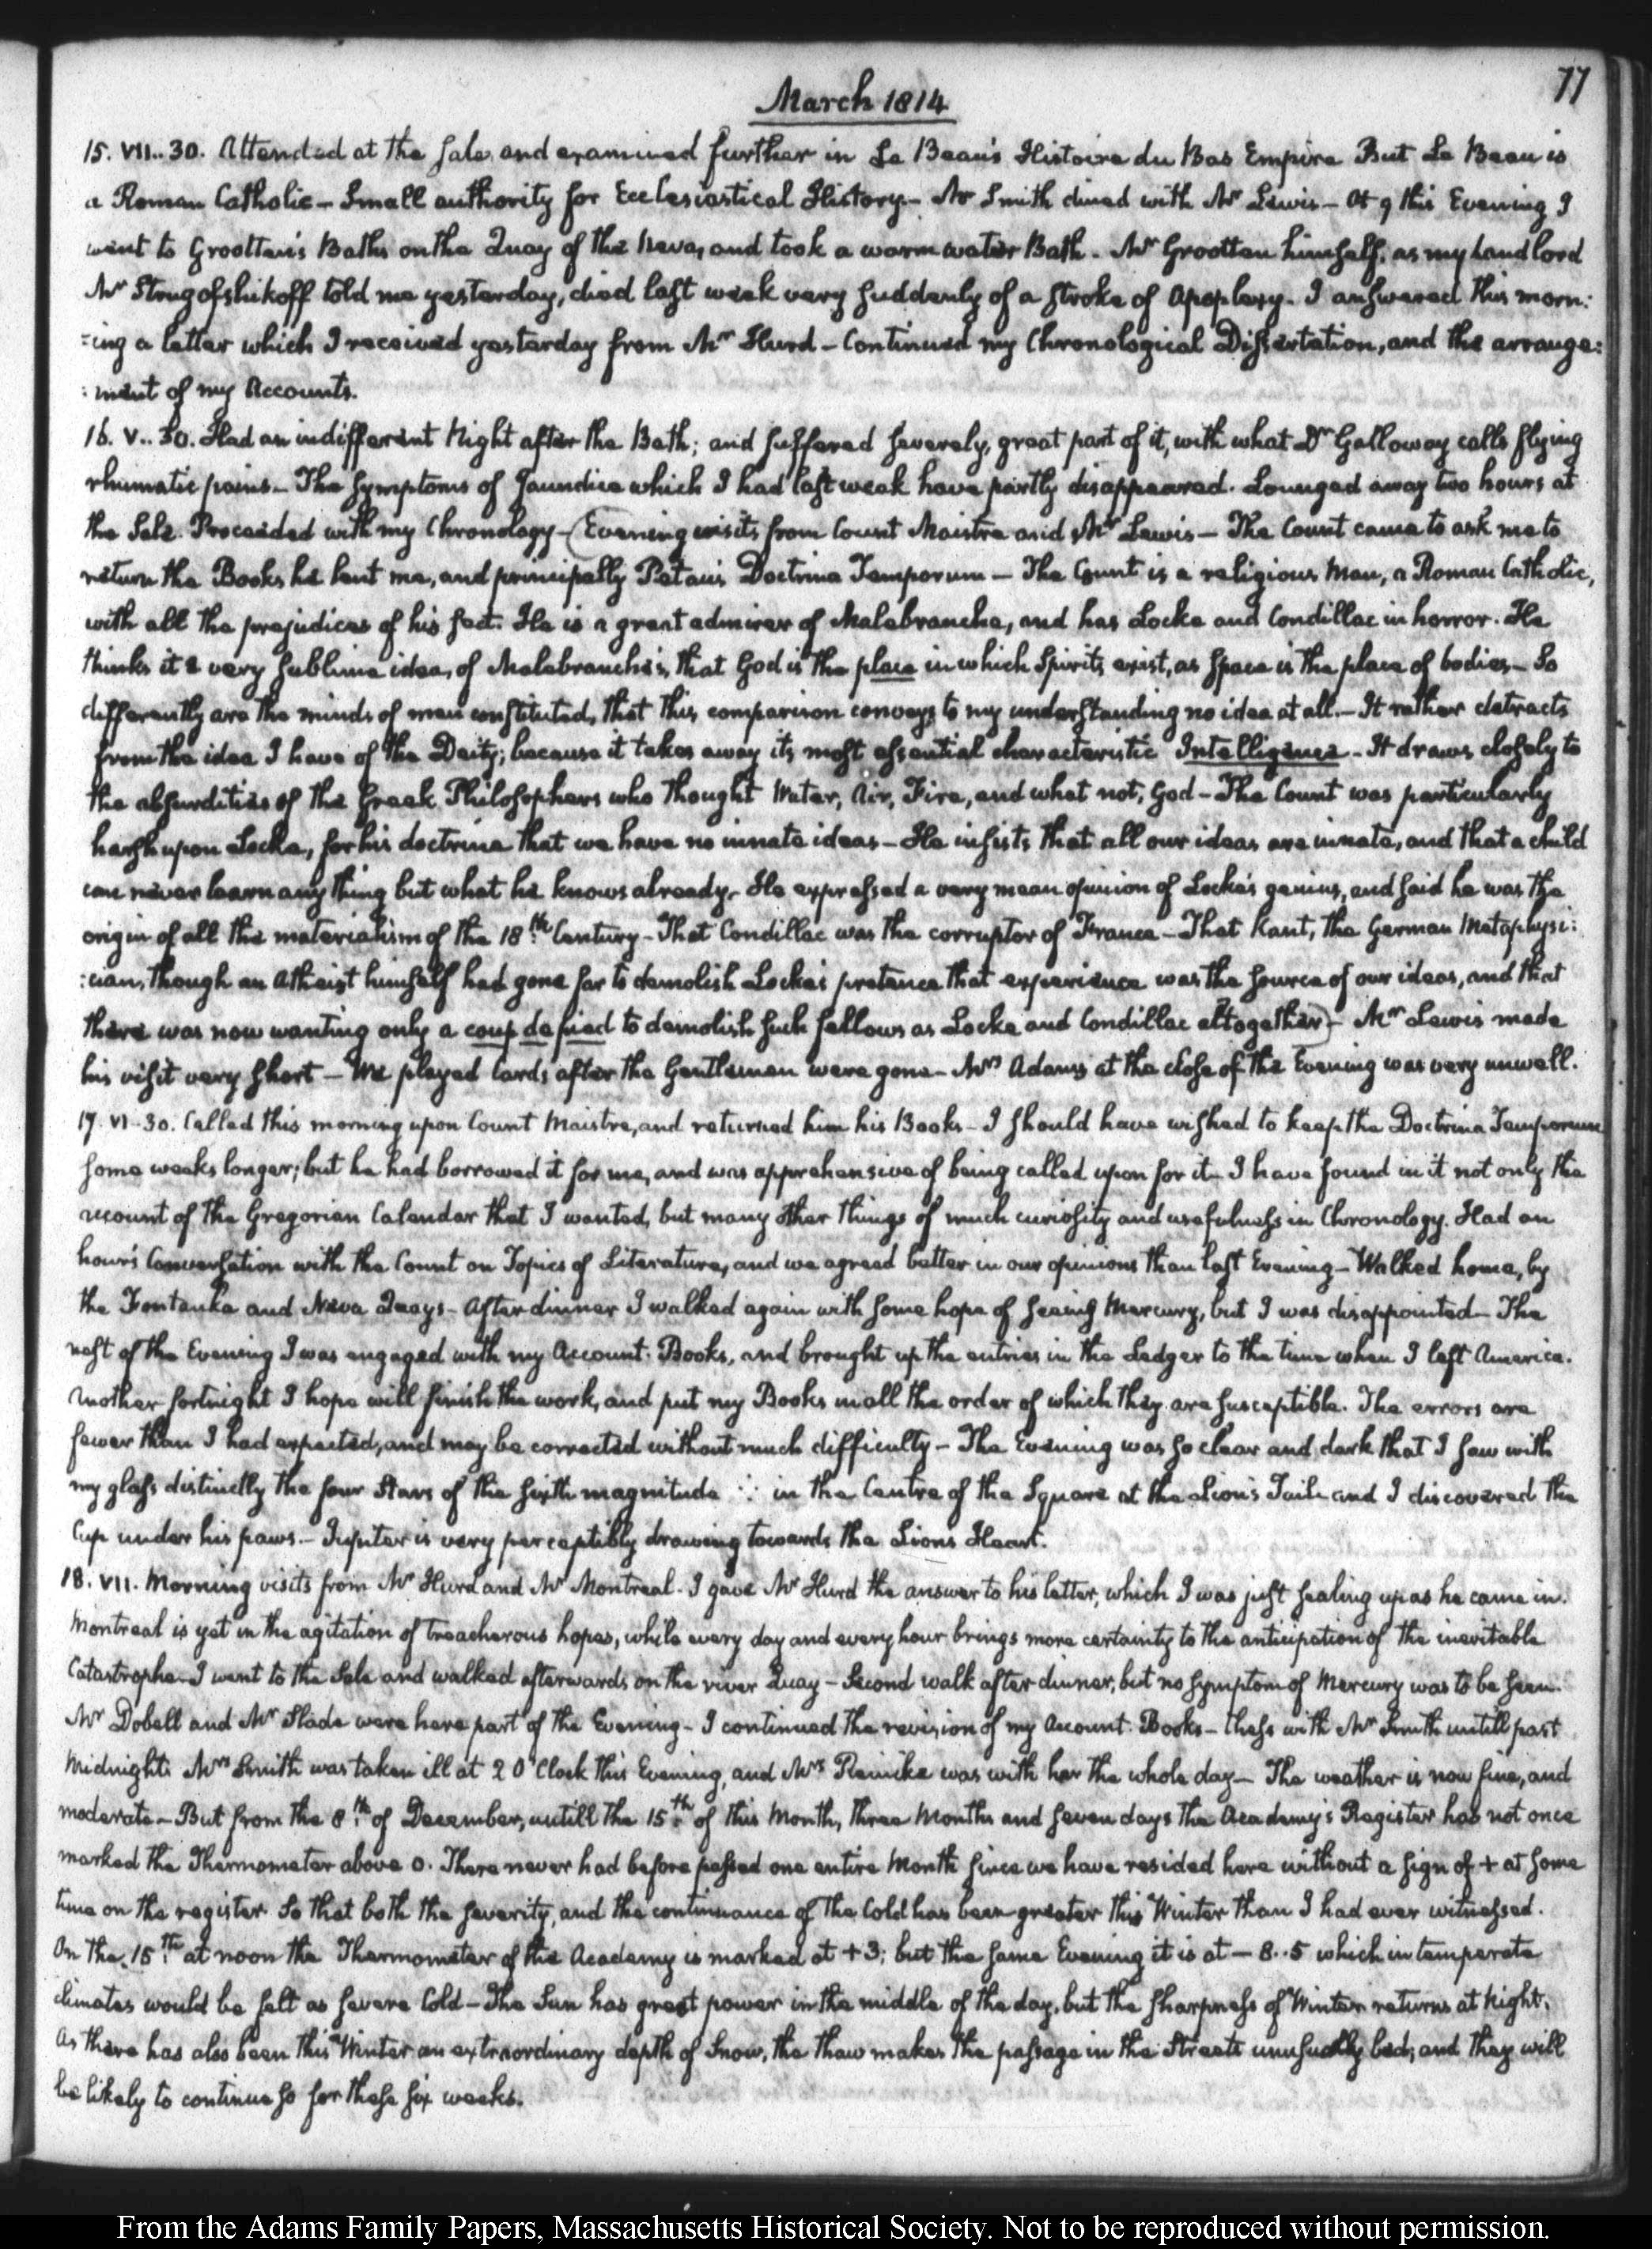 77
March 1814
15. VII..30. Attended at the Sale, and examined further in Le Beau's Histoire du Bas Empire But Le Beau is
a Roman Catholic – Small authority for Ecclesiastical History – Mr Smith dined with Mr Lewis – At 9 this Evening I
went to Grootten's Baths on the Quay of the Neva, and took a warm water Bath. Mr Grootten himself, as my Landlord
Mr Strugofshikoff told me yesterday, died last week very suddenly of a stroke of Apoplexy. I answered this morn:
:ing a letter which I received yesterday from Mr Hurd – Continued my Chronological Dissertation, and the arrange:
:ment of my Accounts.
16. V..30. Had an indifferent Night after the Bath; and suffered severely, great part of it, with what Dr Galloway calls flying
rhumatic pains – The symptoms of Jaundice which I had last week have partly disappeared. Lounged away two hours at
the Sale. Proceeded with my Chronology – (Evening visits from Count Maistre and Mr Lewis – The Count came to ask me to
return the Books he lent me, and principally Petau's Doctrina Temporum – The Count is a religious Man, a Roman Catholic,
with all the prejudices of his sect. He is a great admirer of Malebranche, and has Locke and Condillac in horror. He
thinks it a very sublime idea, of Malebranche's, that God is the place in which Spirits exist, as space is the place of bodies – So
differently are the minds of men constituted, that this comparison conveys to my understanding no idea at all. – It rather detracts
from the idea I have of the Deity; because it takes away its most essential characteristic Intelligence – It draws closely to
the absurdities of the Greek Philosophers who thought Water, Air, Fire, and what not, God – The Count was particularly
harsh upon Locke, for his doctrine that we have no innate ideas – He insists that all our ideas are innate, and that a child
can never learn any thing but what he knows already. He expressed a very mean opinion of Locke's genius, and said he was the
origin of all the materialism of the 18th Century – That Condillac was the corruptor of France – That Kant, the German Metaphysi:
:cian, though an Atheist himself had gone far to demolish Locke's pretence that experience was the source of our ideas, and that
there was now wanting only a coup de pied to demolish such fellows as Locke and Condillac altogether) – Mr Lewis made
his visit very short – We played Cards after the Gentlemen were gone – Mrs Adams at the close of the Evening was very unwell.
17. VI..30. Called this morning upon Count Maistre, and returned him his Books – I should have wished to keep the Doctrina Temporum
some weeks longer; but he had borrowed it for me, and was apprehensive of being called upon for it – I have found in it not only the
account of the Gregorian Calendar that I wanted, but many other things of much curiosity and usefulness in Chronology. Had an
hour's Conversation with the Count on Topics of Literature, and we agreed better in our opinions than last Evening – Walked home, by
the Fontanka and Neva Quays – After dinner I walked again with some hope of seeing Mercury, but I was disappointed – The
rest of the Evening I was engaged with my Account-Books, and brought up the entries in the Ledger to the time when I left America.
Another fortnight I hope will finish the work, and put my Books in all the order of which they are susceptible. The errors are
fewer than I had expected, and may be corrected without much difficulty – The Evening was so clear and dark that I saw with
my glass distinctly the four Stars of the sixth magnitude in the Centre of the Square at the Lion's Tail and I discovered the
Cup under his paws – Jupiter is very perceptibly drawing towards the Lion's Heart.
18. VII. Morning visits from Mr Hurd and Mr Montreal. I gave Mr Hurd the answer to his letter, which I was just sealing up as he came in.
Montreal is yet in the agitation of treacherous hopes, while every day and every hour brings more certainty to the anticipation of the inevitable
Catastrophe – I went to the Sale and walked afterwards on the river Quay – Second walk after dinner, but no symptom of Mercury was to be seen.
Mr Dobell and Mr Slade were here part of the Evening – I continued the revision of my Account-Books – Chess with Mr Smith untill past
Midnight. Mrs Smith was taken ill at 2 O'Clock this Evening, and Mrs Reinike was with her the whole day – The weather is now fine, and
moderate – But from the 8th of December, untill the 15th of this Month, three Months and seven days the Academy's Register has not once
marked the Thermometer above 0. There never had before passed one entire Month since we have resided here without a sign of + at some
time on the register. So that both the severity, and the continuance of the Cold has been greater this Winter than I had ever witnessed.
On the 15th at noon the Thermometer of the Academy is marked at +3; but the same Evening it is at – 8..5 which in temperate
climates would be felt as severe Cold – The Sun has great power in the middle of the day, but the sharpness of Winter returns at Night.
As there has also been this Winter an extraordinary depth of Snow, the thaw makes the passage in the Streets unusually bad; and they will
be likely to continue so for these six weeks.
From the Adams Family Papers, Massachusetts Historical Society. Not to be reproduced without permission.